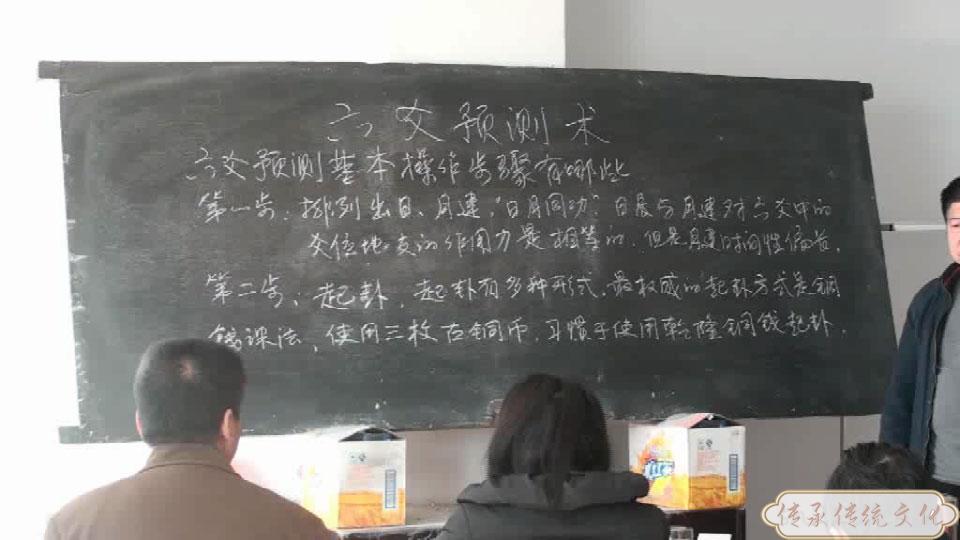 六爻预测术
六爻预测基本操作步骤有哪些
第一步：排列出日、月建，“日月同功”日辰与月建对六爻中的
爻位地支的作用力是相等的，但是月建时间性偏长，
第二步、起卦，起卦有多种形式，最权威的起卦方式是铜
钱课法，使用三枚古铜币，习惯于使用乾隆铜钱起卦，
传承传统文化